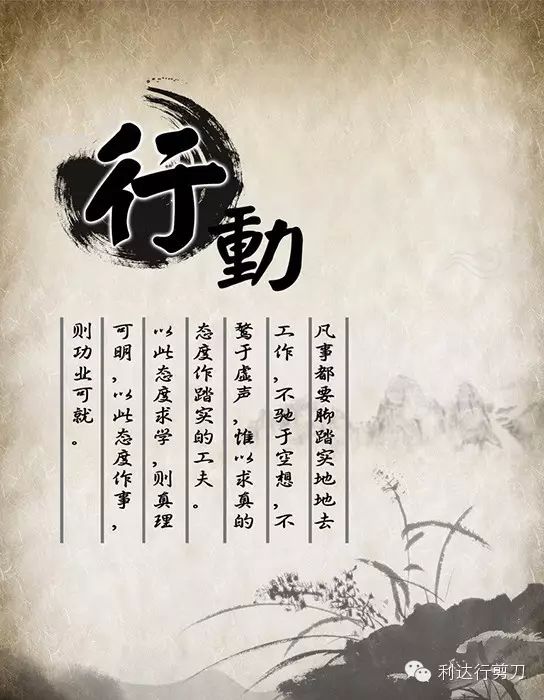 行動
凡事都要脚踏实地地去
工作，不驰于空想，不
鹜于虚声，惟以求真的
态度作踏实的工夫。
以此态度求学，则真理
可明，以此态度作事，
则功业可就。
利达行剪刀